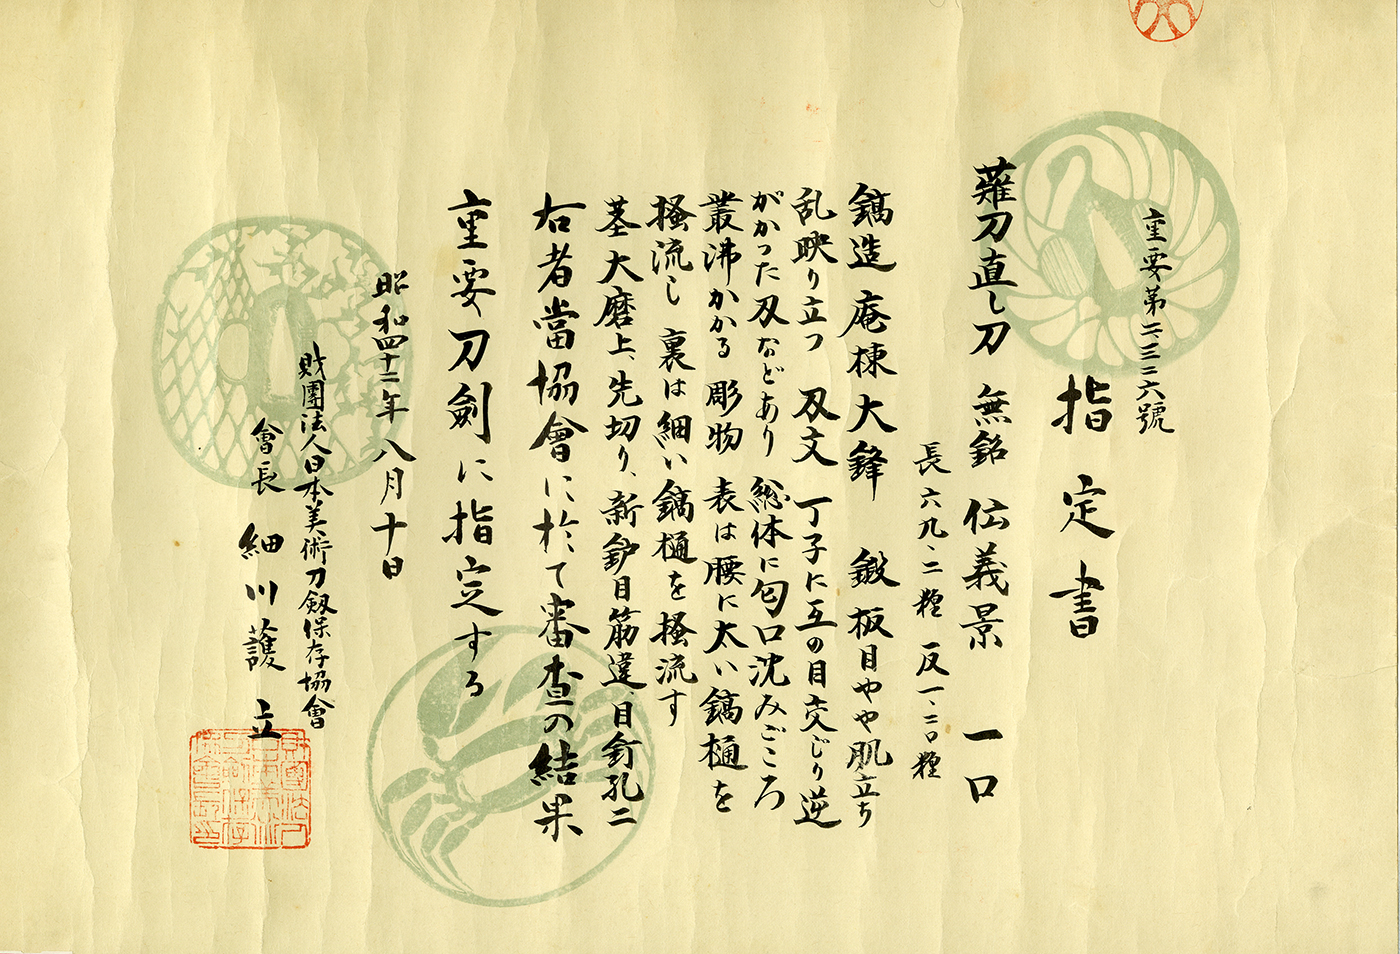 重要第二三三六號
指定書
薙刀直し刀 無銘 伝義景 一口
長 六九、二糎 反一、二〇糎
鎬造 庵棟 大鋒 鍛 板目やや肌立ち
乱映り立つ 刃文 丁子に互の目交じり逆
がかった刃などあり 総体に匂口沈みごころ
叢沸かかる 彫物 表は腰に太い鎬樋を
掻流し 裏は細い鎬樋を掻流す
茎 大磨上、先切り、新鈩目筋違、目釘孔二
右者當協會に於て審査の結果
重要刀劍に指定する
昭和四十二年八月十日
財團法人日本美術刀剣保存協會
會長 細川護立